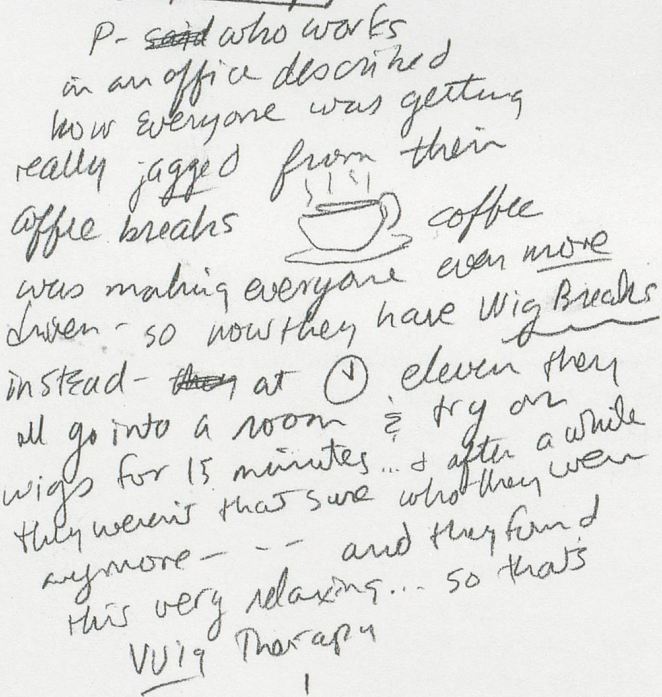 P- said who works
in an office described
how everyone was getting
really jagged from their
coffee breaks coffee
was making everyone even more
driven - so now they have Wig Breaks
instead - they at eleven they
all go into a room & try on
wigs for 15 minutes... & after a while
they weren't that sure who they were
anymore - - - and they found
this very relaxing... so that's
Wig Therapy